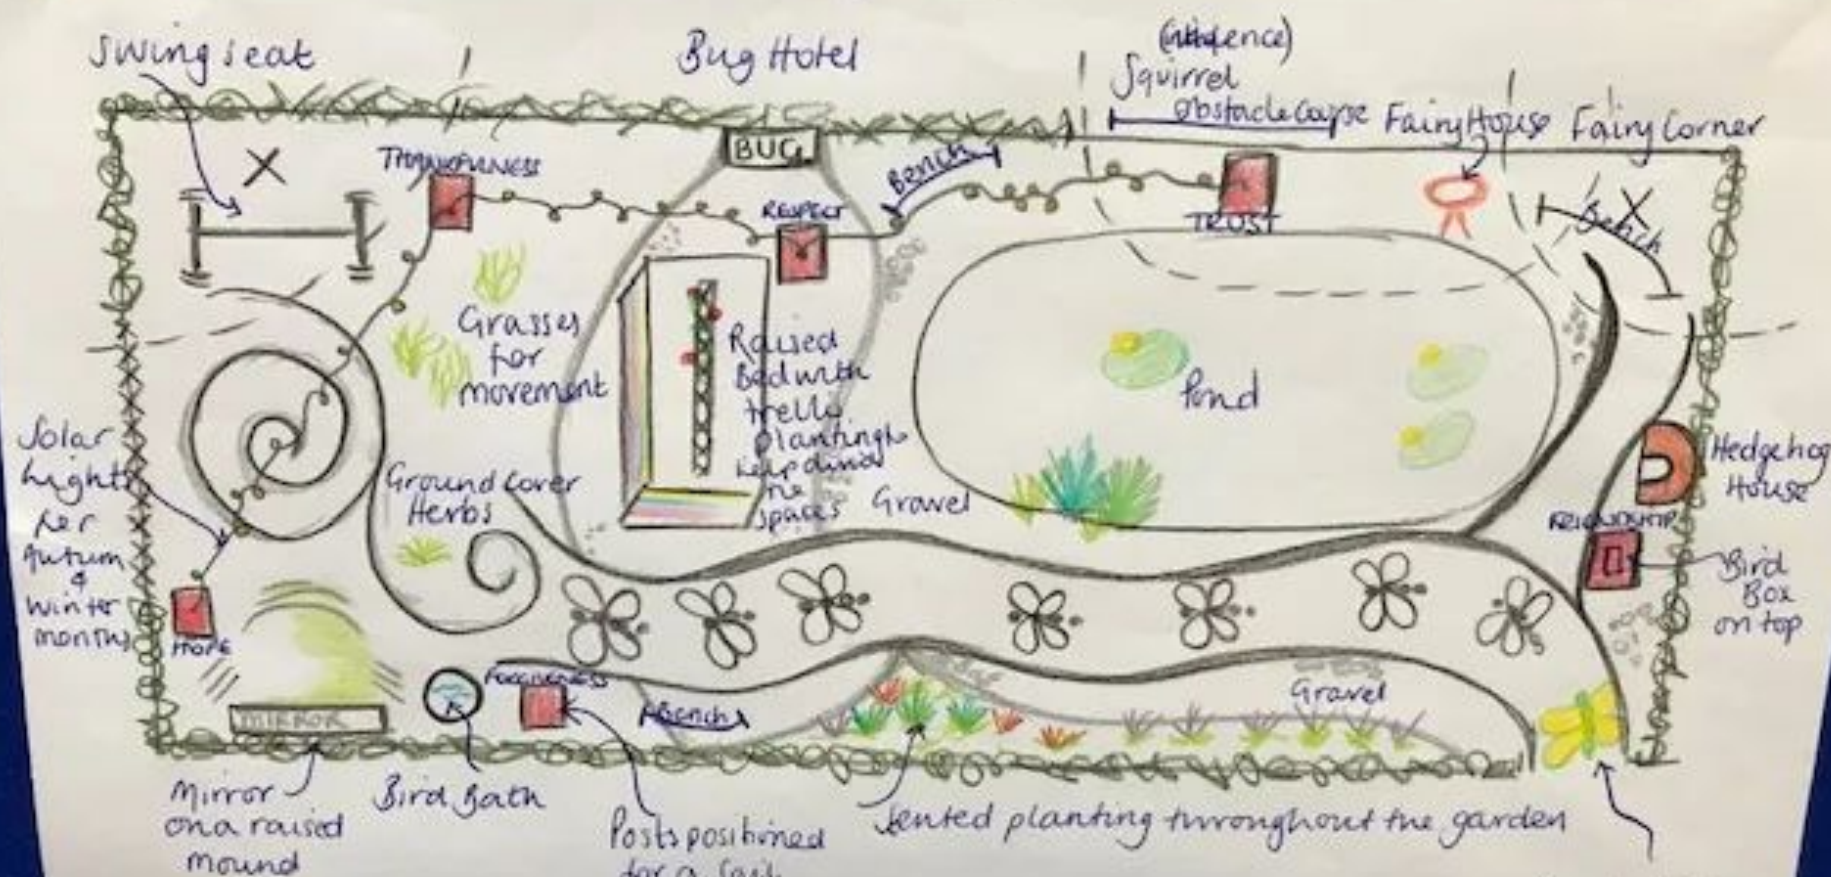 Swing seat
Bug Hotel
Squirrel
Obstacle Course
Fairy House
Fairy Corner
THANKFULNESS
BUG
Bench
RESPECT
TRUST
Bench
Grasses
for
movement
Raised
Bed with
trellis
planting to
keep dividing
the
spaces
Pond
Solar
lights
for
Autumn
&
winter
months
Ground cover
Herbs
Gravel
Hedgehog
House
FRIENDSHIP
Bird
Box
on top
HOPE
FORGIVENESS
Bench
Gravel
MIRROR
Mirror
on a raised
mound
Bird Bath
Posts positioned
for a sail
Sented planting throughout the garden